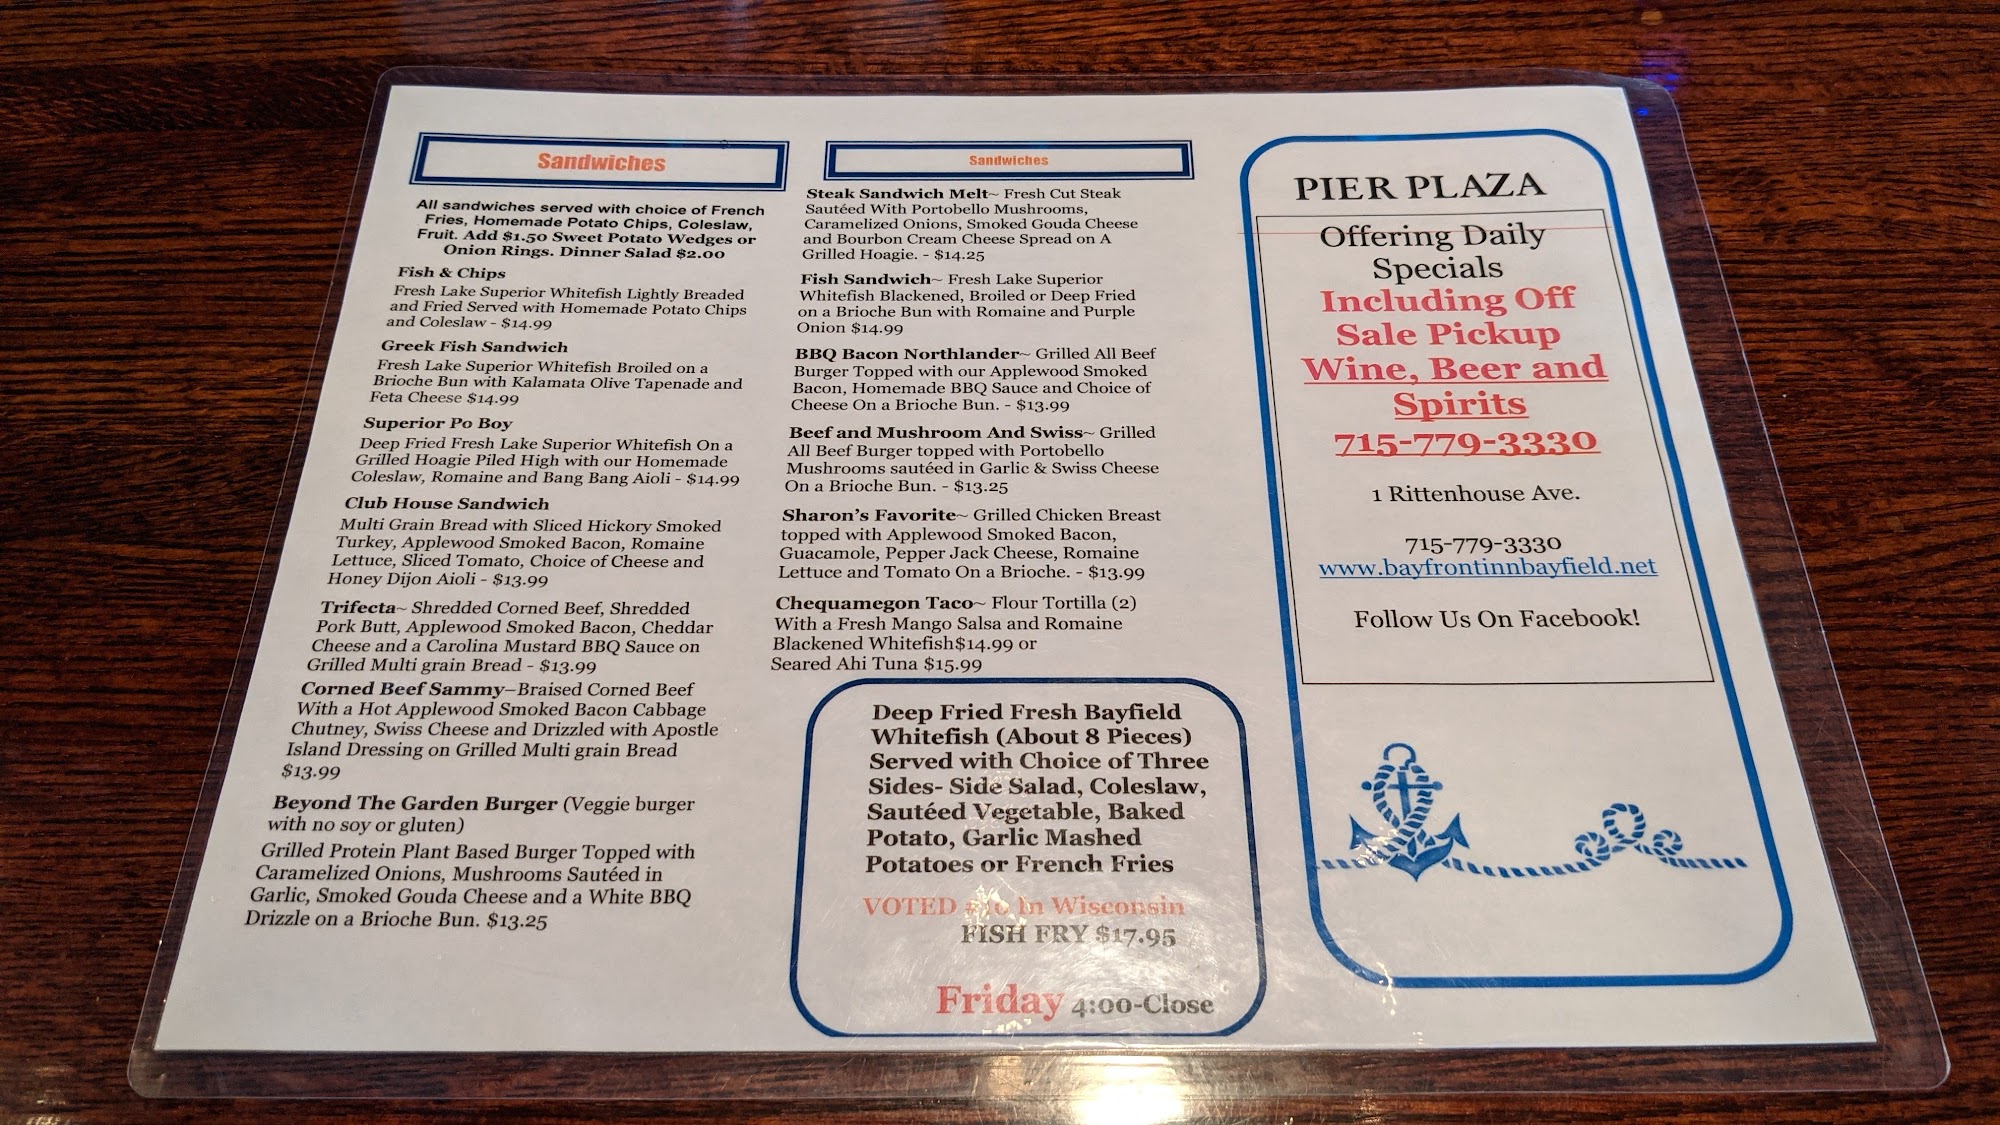 Sandwiches
All sandwiches served with choice of French
Fries, Homemade Potato Chips, Coleslaw,
Fruit. Add $1.50 Sweet Potato Wedges or
Onion Rings. Dinner Salad $2.00
Fish & Chips
Fresh Lake Superior Whitefish Lightly Breaded
and Fried Served with Homemade Potato Chips
and Coleslaw - $14.99
Greek Fish Sandwich
Fresh Lake Superior Whitefish Broiled on a
Brioche Bun with Kalamata Olive Tapenade and
Feta Cheese $14.99
Superior Po Boy
Deep Fried Fresh Lake Superior Whitefish On a
Grilled Hoagie Piled High with our Homemade
Coleslaw, Romaine and Bang Bang Aioli - $14.99
Club House Sandwich
Multi Grain Bread with Sliced Hickory Smoked
Turkey, Applewood Smoked Bacon, Romaine
Lettuce, Sliced Tomato, Choice of Cheese and
Honey Dijon Aioli - $13.99
Trifecta~ Shredded Corned Beef, Shredded
Pork Butt, Applewood Smoked Bacon, Cheddar
Cheese and a Carolina Mustard BBQ Sauce on
Grilled Multi grain Bread - $13.99
Corned Beef Sammy–Braised Corned Beef
With a Hot Applewood Smoked Bacon Cabbage
Chutney, Swiss Cheese and Drizzled with Apostle
Island Dressing on Grilled Multi grain Bread
$13.99
Beyond The Garden Burger (Veggie burger
with no soy or gluten)
Grilled Protein Plant Based Burger Topped with
Caramelized Onions, Mushrooms Sautéed in
Garlic, Smoked Gouda Cheese and a White BBQ
Drizzle on a Brioche Bun. $13.25
Sandwiches
Steak Sandwich Melt~ Fresh Cut Steak
Sautéed With Portobello Mushrooms,
Caramelized Onions, Smoked Gouda Cheese
and Bourbon Cream Cheese Spread on A
Grilled Hoagie. - $14.25
Fish Sandwich~ Fresh Lake Superior
Whitefish Blackened, Broiled or Deep Fried
on a Brioche Bun with Romaine and Purple
Onion $14.99
BBQ Bacon Northlander~ Grilled All Beef
Burger Topped with our Applewood Smoked
Bacon, Homemade BBQ Sauce and Choice of
Cheese On a Brioche Bun. - $13.99
Beef and Mushroom And Swiss~ Grilled
All Beef Burger topped with Portobello
Mushrooms sautéed in Garlic & Swiss Cheese
On a Brioche Bun. - $13.25
Sharon's Favorite~ Grilled Chicken Breast
topped with Applewood Smoked Bacon,
Guacamole, Pepper Jack Cheese, Romaine
Lettuce and Tomato On a Brioche. - $13.99
Chequamegon Taco~ Flour Tortilla (2)
With a Fresh Mango Salsa and Romaine
Blackened Whitefish$14.99 or
Seared Ahi Tuna $15.99
Deep Fried Fresh Bayfield
Whitefish (About 8 Pieces)
Served with Choice of Three
Sides- Side Salad, Coleslaw,
Sautéed Vegetable, Baked
Potato, Garlic Mashed
Potatoes or French Fries
VOTED #10 In Wisconsin
FISH FRY $17.95
Friday 4:00-Close
PIER PLAZA
Offering Daily
Specials
Including Off
Sale Pickup
Wine, Beer and
Spirits
715-779-3330
1 Rittenhouse Ave.
715-779-3330
www.bayfrontinnbayfield.net
Follow Us On Facebook!